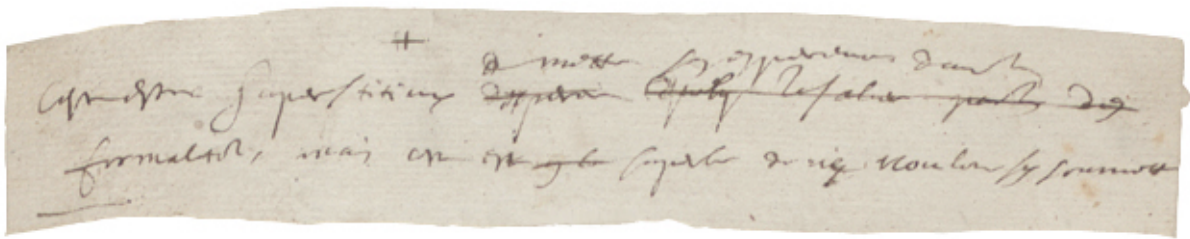 +
de mettre son esperance dans les
C'est estre superstitieux
formalitez, mais c'est estre superbe de ne vouloir s'y soumettre